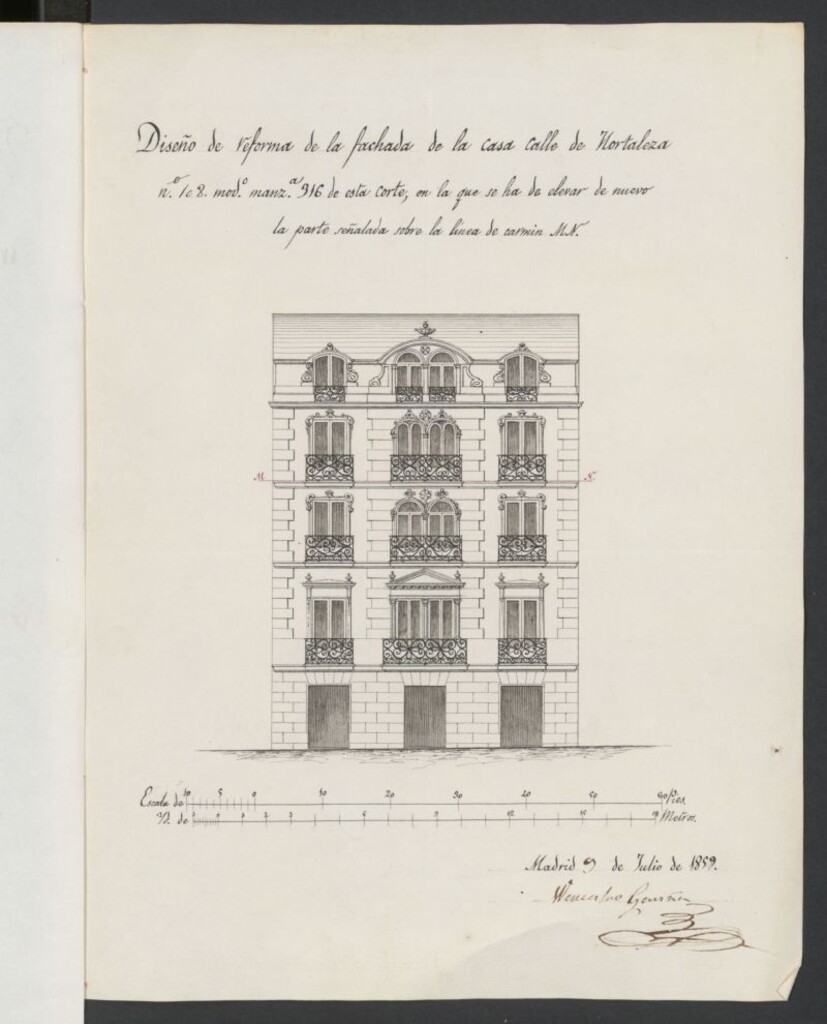 Diseño de reforma de la fachada de la casa calle de Hortaleza
n.º 1 e 8. mod.º manz.ª 316 de esta corte, en la que se ha de elevar de nuevo
la parte señalada sobre la linea de carmin M.N.
M N.
Escala de 10 5 0 10 20 30 40 50 60 Pies.
Yd. de 1 0 1 2 3 6 9 12 15 18 Metros.
Madrid 9 de Julio de 1859.
Wenceslao